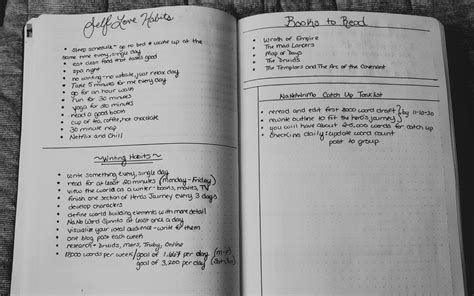 Self Love Habits
sleep schedule - go to bed & wake up at the
same time every single day
eat clean food that tastes good
spa night
no writing - no website, just relax day
Take 5 minutes for me every day
go for an hour walk
run for 30 minutes
yoga for 20 minutes
read a good book
cup of tea, coffee, hot chocolate
30 minute nap
Netflix and Chill
~Writing Habits~
write something every single day
read for at least 20 minutes (Monday - Friday)
view the world as a writer - books, movies, TV
finish one section of Hero's Journey every 3 days
develop characters
define world building elements with more detail
NaNo Word Sprints at least once a day
visualize your ideal audience - write for them
one blog post each week
research - Druids, Mars, Truby, Online
goal of 1,667 per day (M-F)
goal of 3,200 per day (Sat-Sun)
Books to Read
Wrath of Empire
The Mad Lancers
Map of Days
The Druids
The Templars and The Arc of the Covenant
NaNoWriMo Catch Up Task List
reread and edit first 8000 word draft } by 11-10-30
rewrite outline to fit the hero's journey
you will have about 25,000 words for catch up
checking daily: update word count
post to group